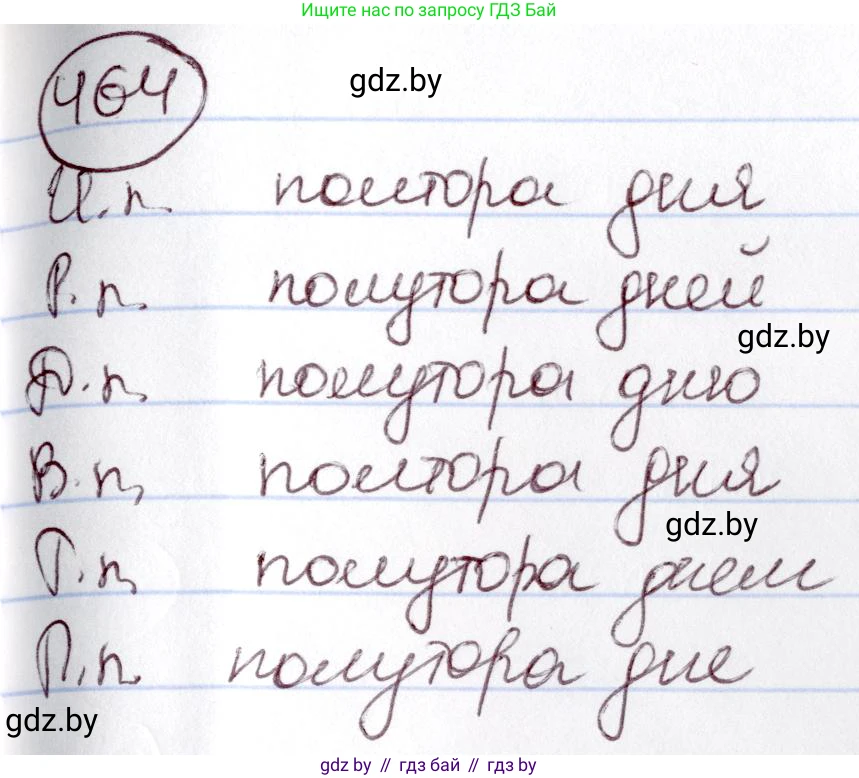 Ищите нас по запросу ГДЗ Бай
464
gdz.by
И.п. полтора дня
Р.п. полутора дней
gdz.by
Д.п. полутора дню
В.п. полтора дня
gdz.by
Т.п. полутора днем
П.п. полутора дне
gdz.by
gdz by // гдз бай // gdz by